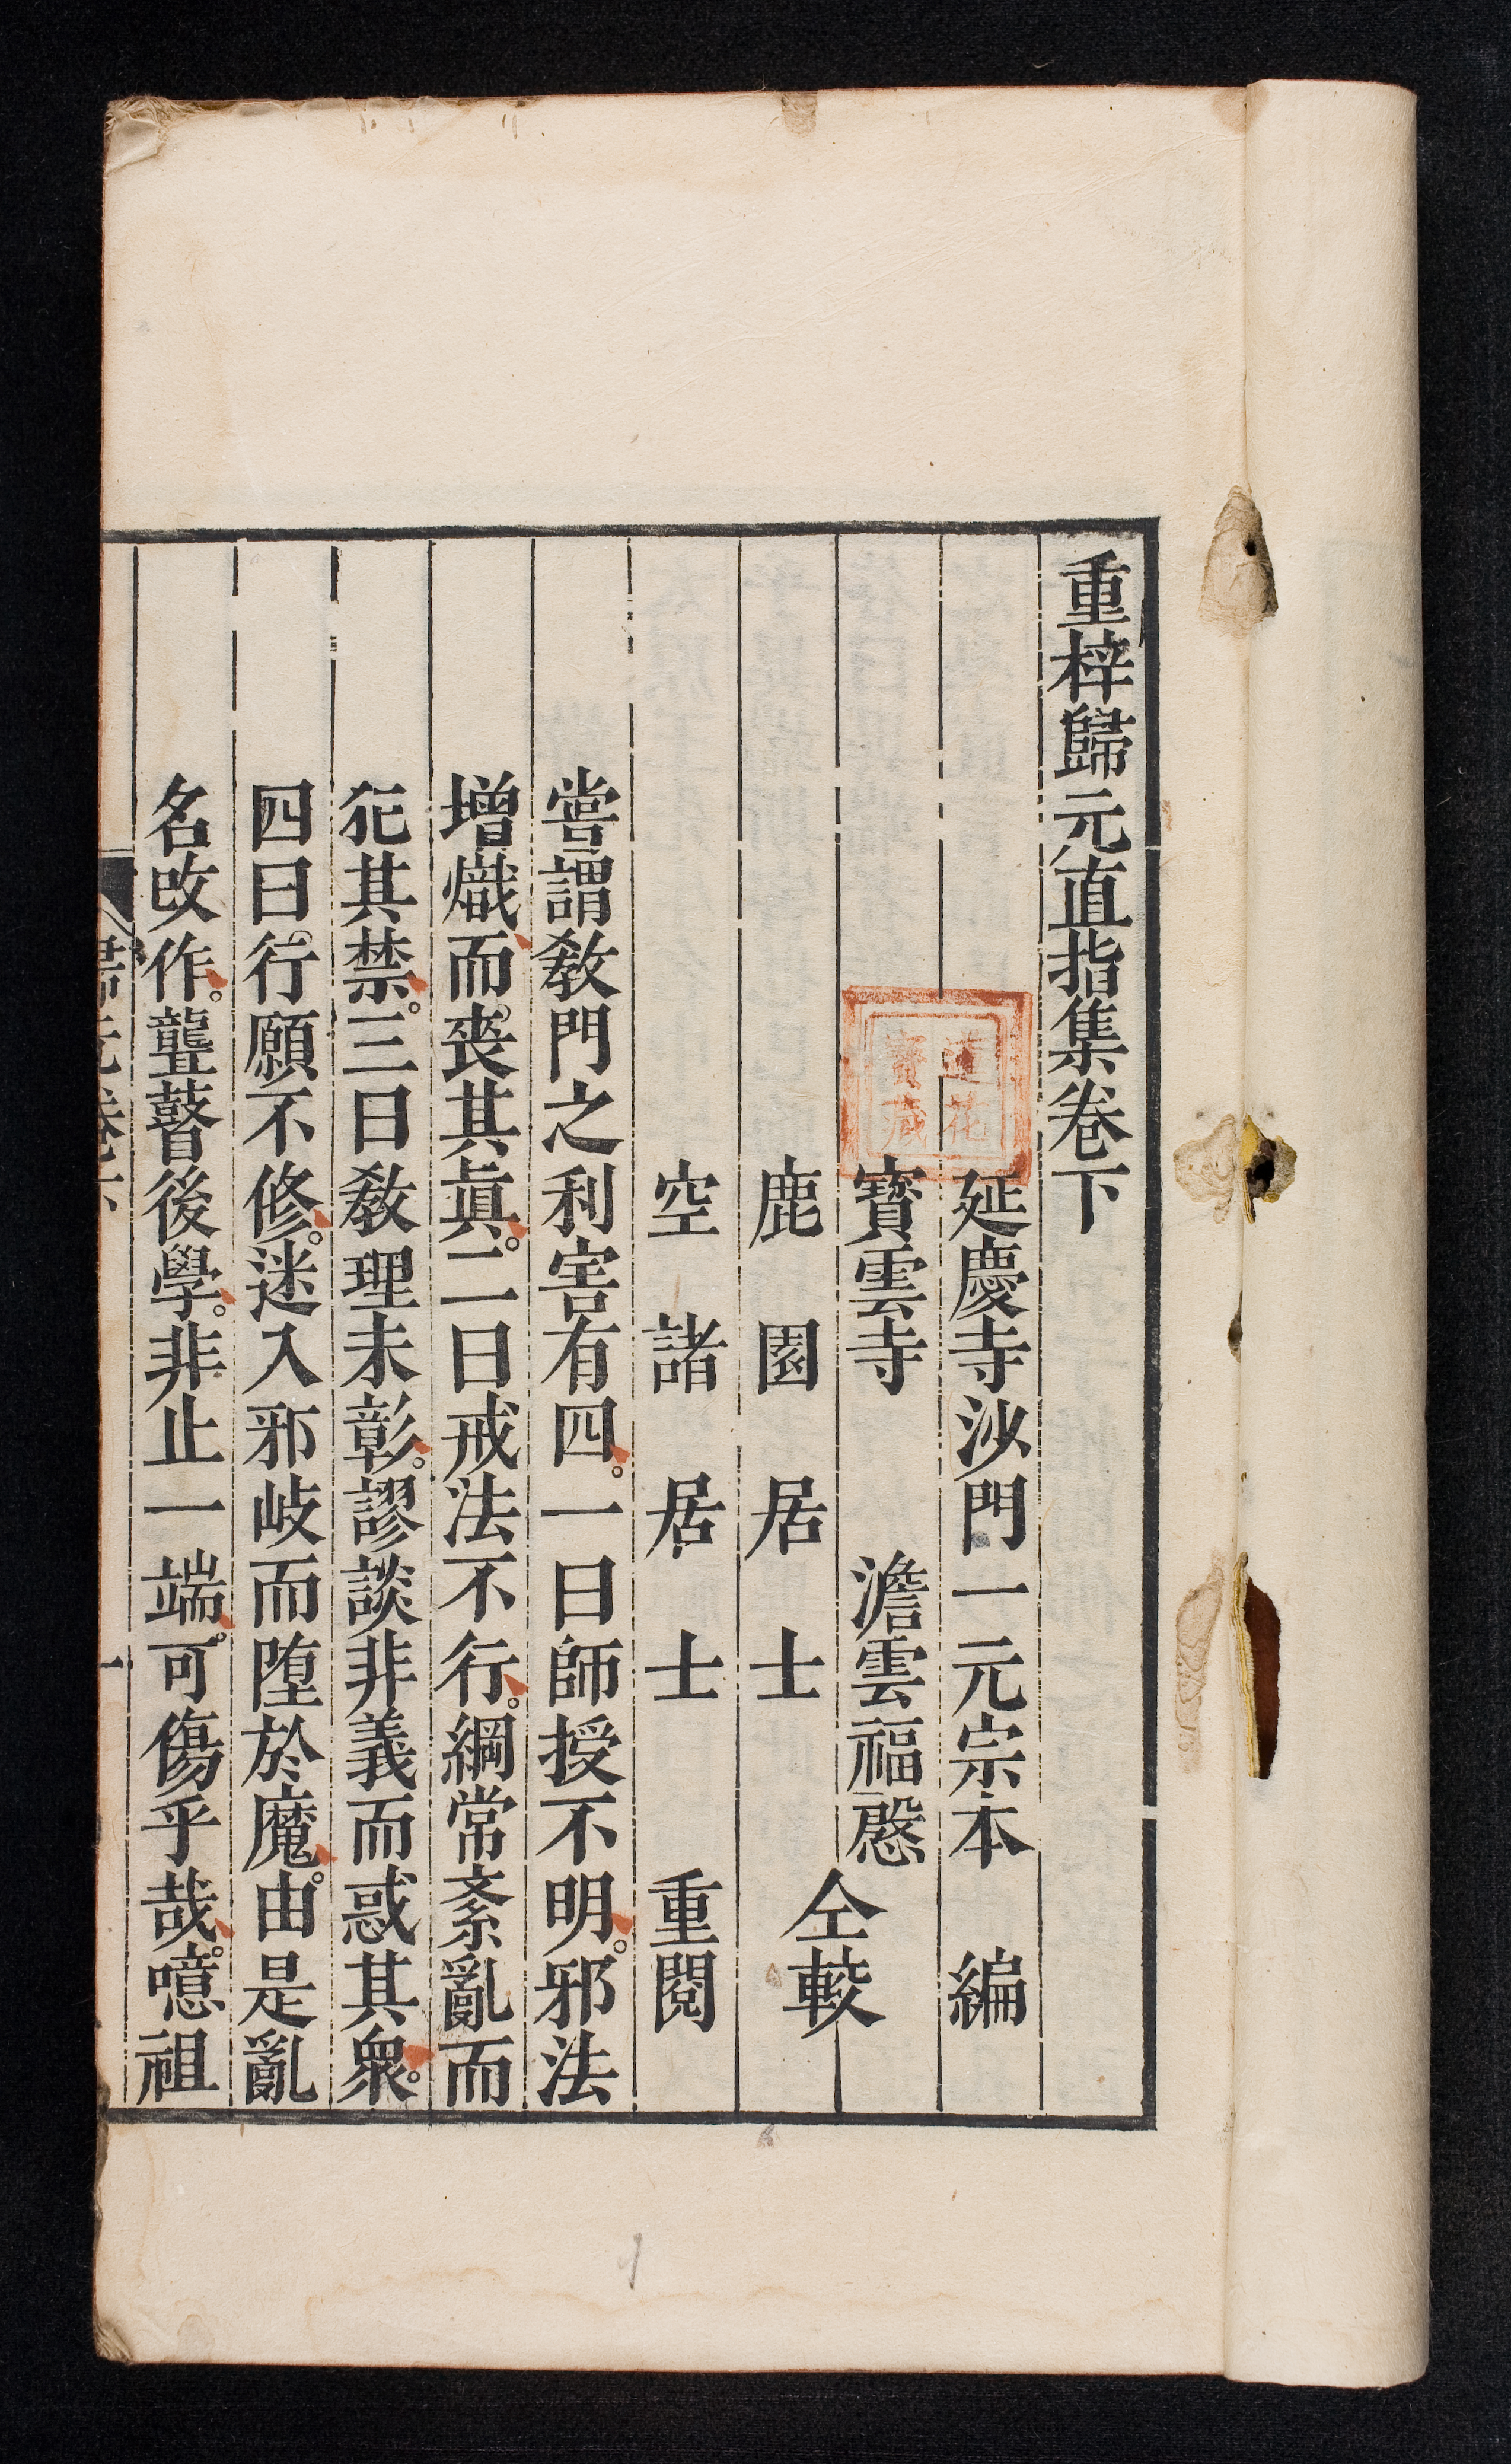 重梓歸元直指集卷下
延慶寺沙門一元宗本 編
寶雲寺 澹雲福慇
仝較
鹿園居士
空諸居士 重閱
嘗謂教門之利害有四。一曰師授不明。邪法
增熾而。喪其眞。二曰戒法不行。綱常紊亂而
犯其禁。三曰教理未彰。謬談非義而惑其衆。
四曰。行願不修。迷入邪岐而墮於魔。由是亂
名改作。聾瞽後學。非止一端。可傷乎哉。噫祖
歸元卷下
一
蓮花
寶藏